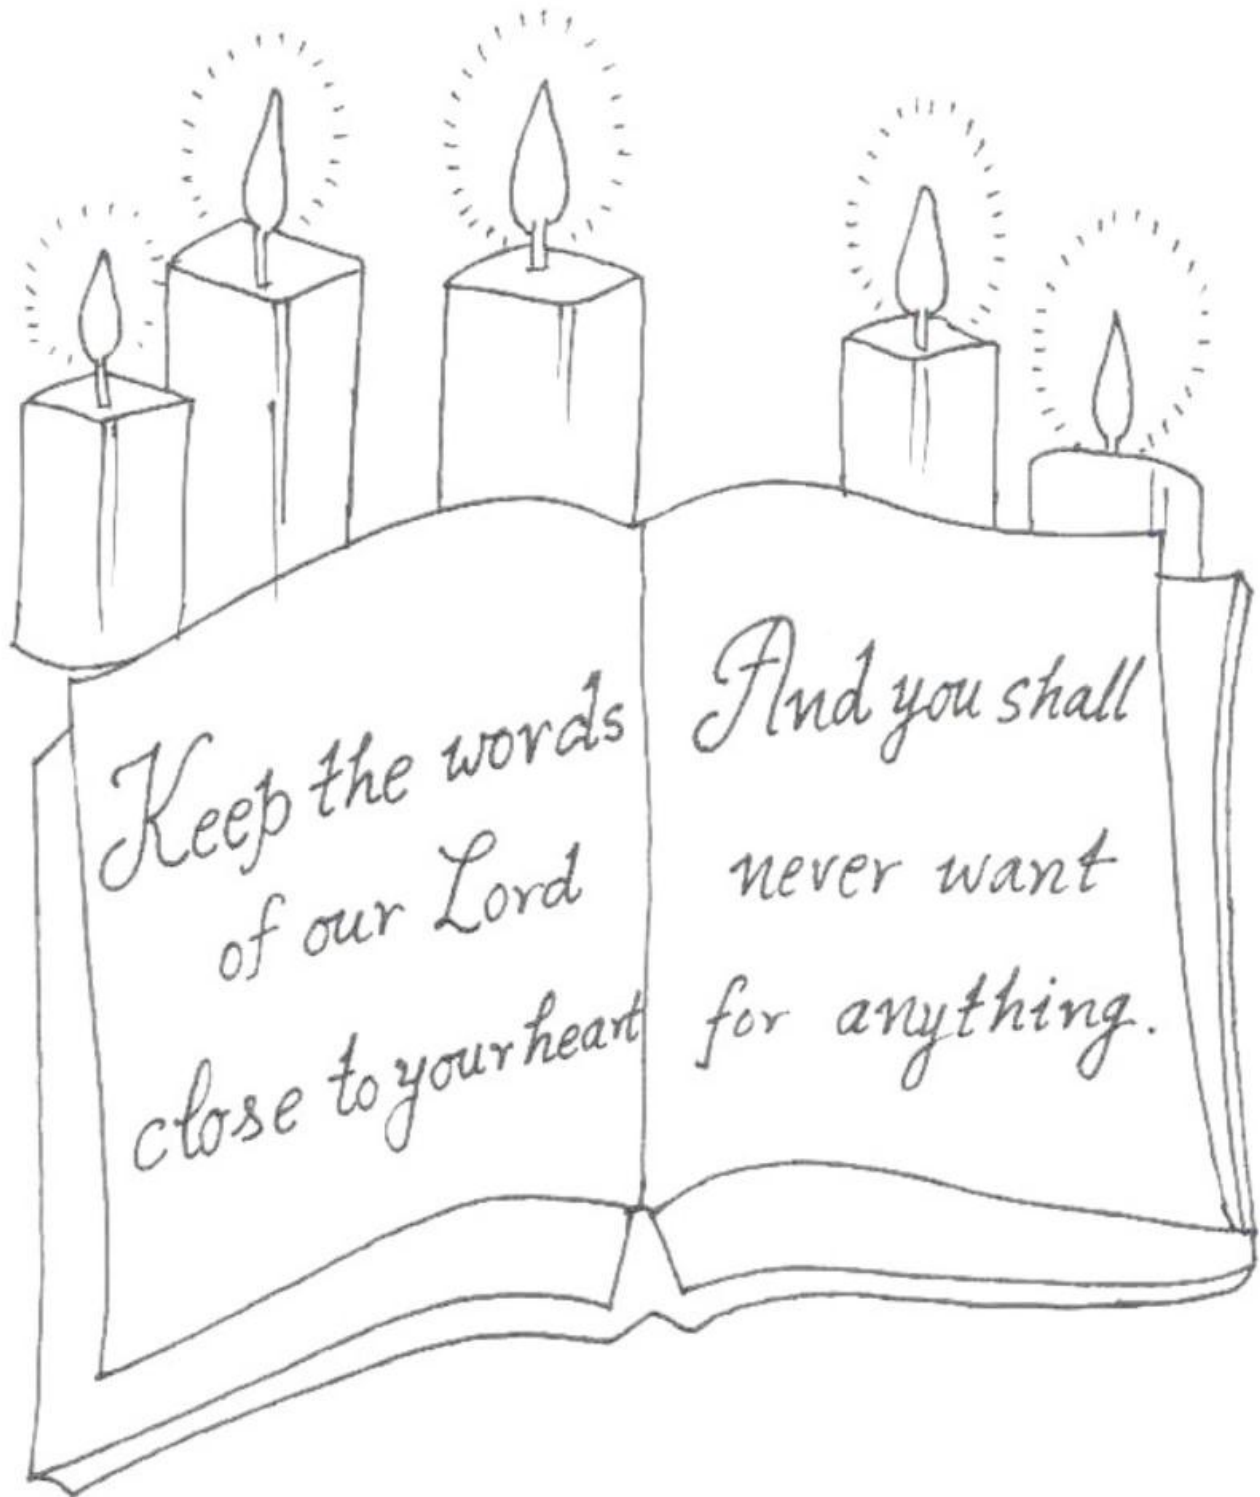 Keep the words
of our Lord
close to your heart
And you shall
never want
for anything.